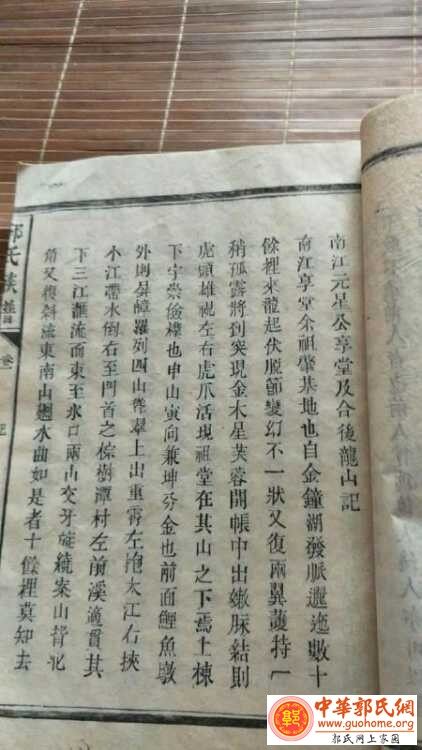 南江元星公享堂及合後龍山記
南江享堂余祖肇基地也自金鐘湖發脉邐迤數十
餘裡來龍起伏脫節變幻不一狀又復兩翼護持一
稍孤露將到突現金木星芙蓉開帳中出嫩脉結則
虎頭雄視左右虎爪活現祖堂在其山之下焉上棟
下宇崇儉樸也申山寅向兼坤艮分金也前面鯉魚墩
外則叅嶂羅列四山聳羣上出重霄左抱太江右挾
小江帶水倒右至門首之棕樹潭村左前溪適貫其
下三江滙流而東至水口兩山交牙旋繞案山背記
角又複斜流東南山廻水曲如是者十餘裡莫知去
郭氏族譜
卷
中華郭氏網
www.guohome.org
郭氏网上家園